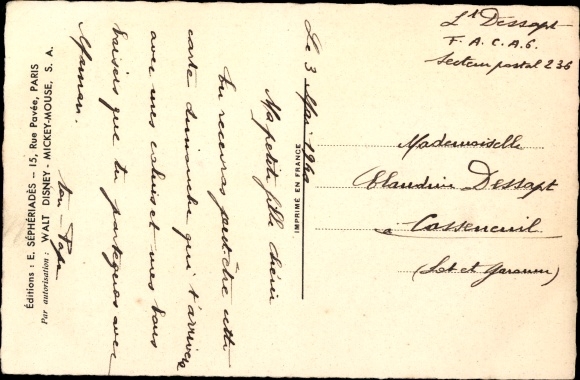 Le 3 Mai 1940
Ma petite fille chérie
Tu recevras peut être cette
carte dimanche qui t'arrivera
avec mes calins et mes bons
baisers que tu partageras avec
Maman.
ton Papa
Lt Dessapt
F. A. C. A. 6.
Secteur postal 236
Mademoiselle
Claudine Dessapt
à Casseneuil
(Lot et Garonne)
IMPRIMÉ EN FRANCE
Éditions : E. SÉPHÉRIADÈS — 15, Rue Pavée, PARIS
Par autorisation : WALT DISNEY - MICKEY-MOUSE, S. A.